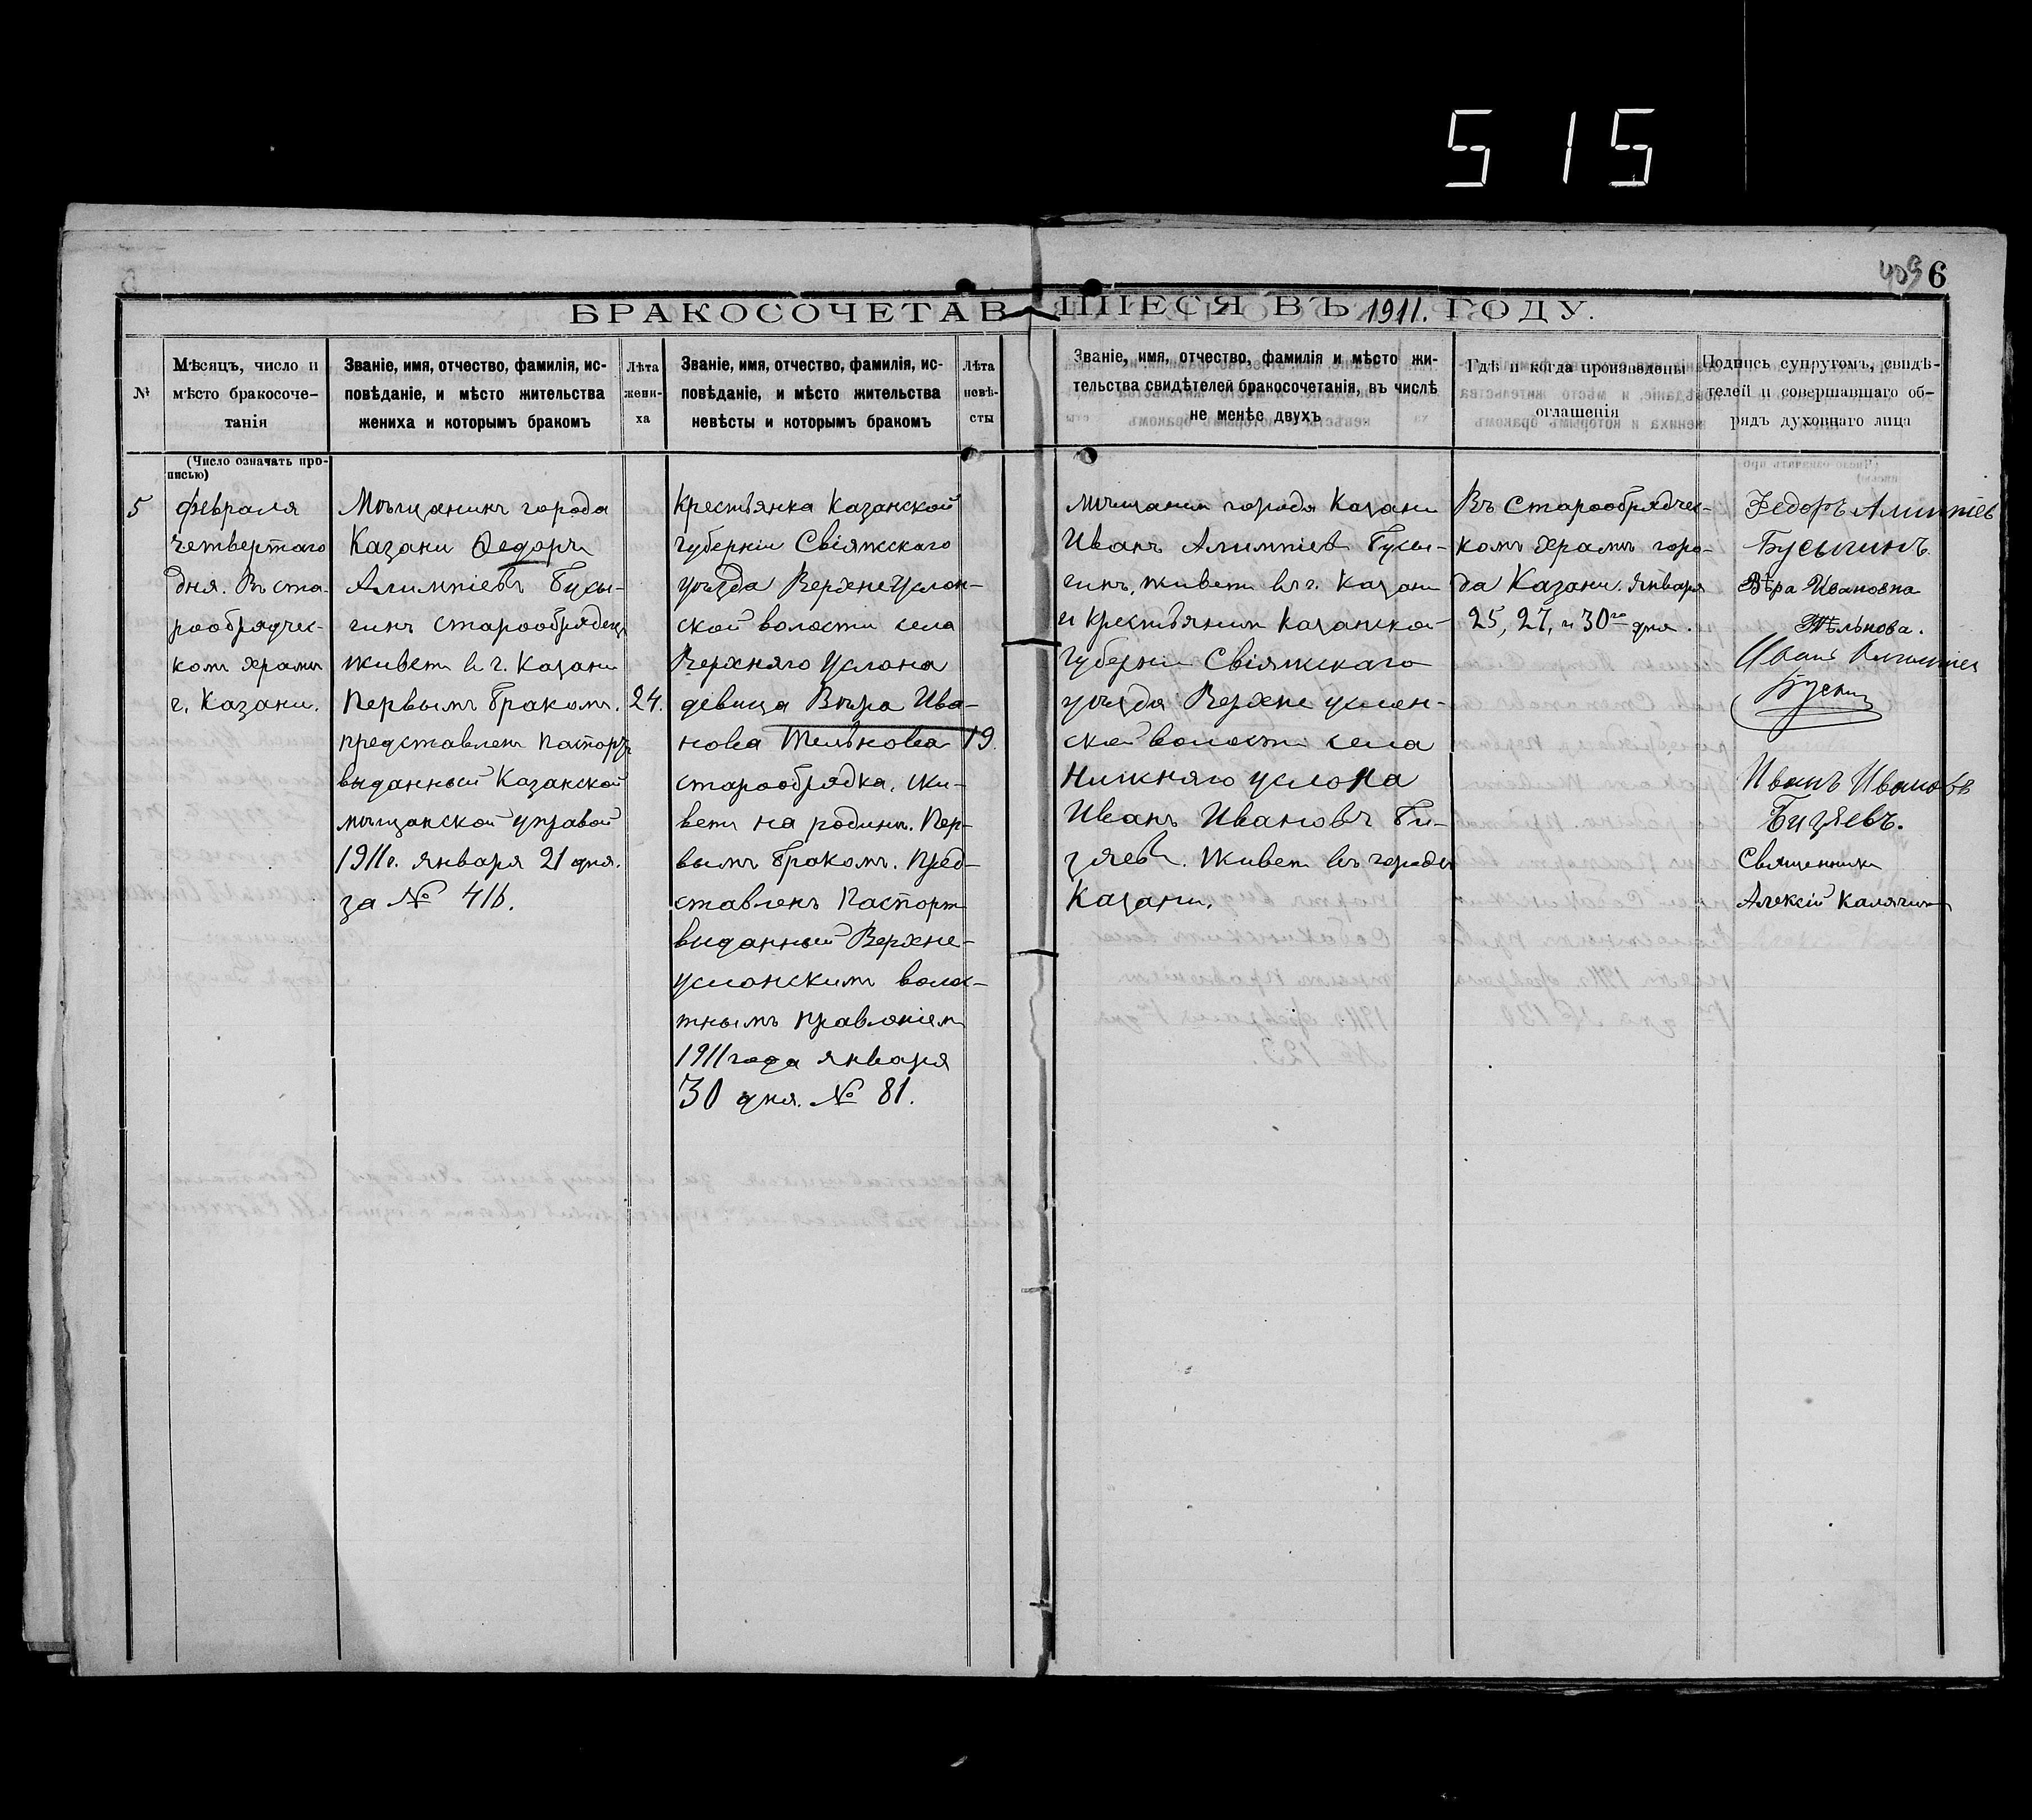 515
409 6
БРАКОСОЧЕТАВШІЕСЯ ВЪ 1911. ГОДУ.
№
Мѣсяцъ, число и
мѣсто бракосоче-
танія
Званіе, имя, отчество, фамилія, ис-
повѣданіе, и мѣсто жительства
жениха и которымъ бракомъ
Лѣта
жени-
ха
Званіе, имя, отчество, фамилія, ис-
повѣданіе, и мѣсто жительства
невѣсты и которымъ бракомъ
Лѣта
невѣ-
сты
Званіе, имя, отчество, фамилія и мѣсто жи-
тельства свидѣтелей бракосочетанія, въ числѣ
не менѣе двухъ
Гдѣ и когда произведены
оглашенія
Подпись супругомъ, свидѣ-
телей и совершавшаго об-
рядъ духовнаго лица
(Число означать про-
писью)
5
февраля
четвертаго
дня. Въ ста-
рообрядчес-
комъ храмѣ
г. Казани.
Мѣщанинъ города
Казани Ѳедоръ
Алимпіевъ Бусы-
гинъ старообрядецъ
живетъ въ г. Казани
Первымъ бракомъ.
представленъ паспортъ
выданный Казанской
мѣщанской управой
1911г. января 21 дня.
за № 416.
24.
Крестьянка Казанской
губерніи Свіяжскаго
уѣзда Верхнеуслон-
ской волости села
Верхняго Услона
дѣвица Вѣра Ива-
нова Тельнова
старообрядка. жи-
ветъ на родинѣ. Пер-
вымъ бракомъ. Пред-
ставленъ Паспортъ
выданный Верхне-
услонскимъ волос-
тнымъ правленіемъ
1911 года января
30 дня. № 81.
19.
мѣщанинъ города Казани
Иванъ Алимпіевъ Бусы-
гинъ, живетъ въ г. Казани
и крестьянинъ Казанской
Губерніи Свіяжскаго
уѣзда Верхне услон-
ской волости села
Нижняго услона
Иванъ Ивановъ Би-
зяевъ. Живетъ въ городѣ
Казани.
Въ Старообрядчес-
комъ храмѣ горо-
да Казани. Января
25, 27, и 30го дня.
Федоръ Алимпіев
Бусыгинъ.
Вѣра Ивановна
Тѣльнова.
Иванъ Алимпіев
Бусыгин
Иванъ Ивановъ
Бизяевъ.
Священникъ
Алексій Калягинъ